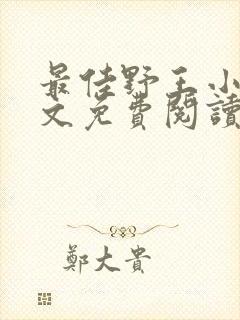 最佳野王小
文免費閱讀
鄭大貴